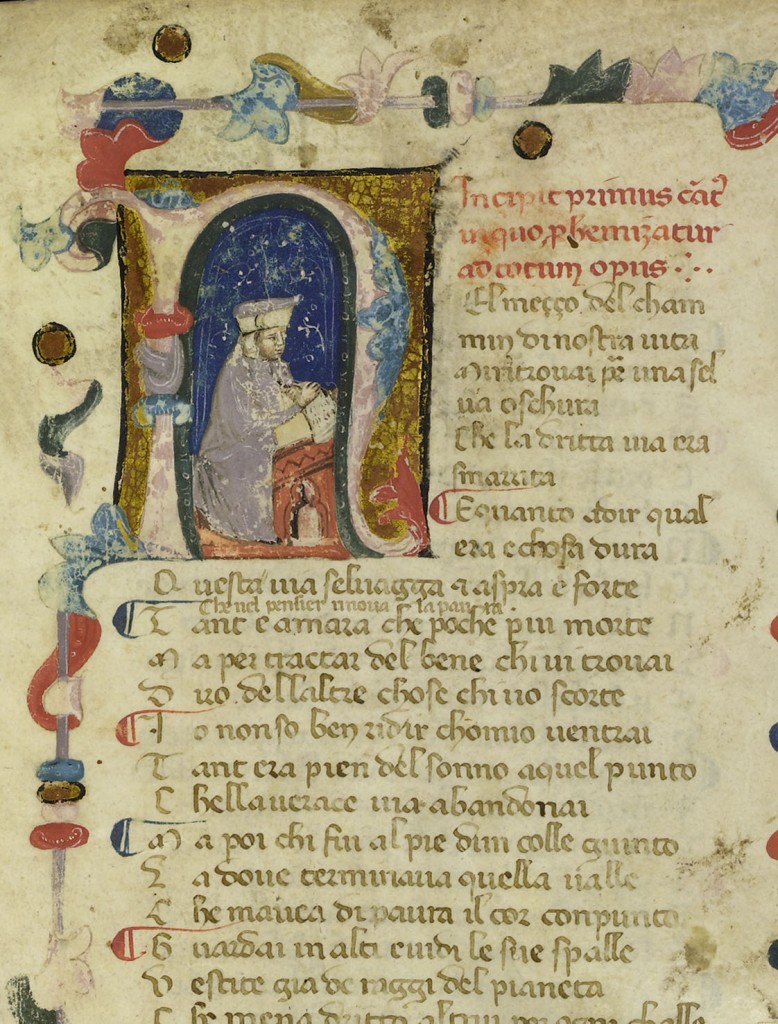 Incipit primus cãt̾
in quo ꝓhemizatur
ad totum opus
El meçço del cham
min di nostra uita
Mi ritrouai ꝑ una sel
ua oschura
Che la dritta uia era
smarrita
E quanto a dir qual
era e chosa dura
Questa uia seluagga ⁊ aspra e forte
Che nel pensier rinoua la paura
Tant e amara che poche piu morte
Ma per tractar del bene chi ui trouai
Diro dellaltre chose chi uo scorte
Io non so ben ridir chomio uentrai
Tant era pien del sonno a quel punto
Chella uerace uia abandonai
Ma poi chi fui al pie dun colle giunto
La doue terminaua quella ualle
Che mauea di paura il cor conpunto
Guardai in alti e uidi le sue spalle
Uestite gia de raggi del pianeta
Che mena dritto altrui per ogni challe